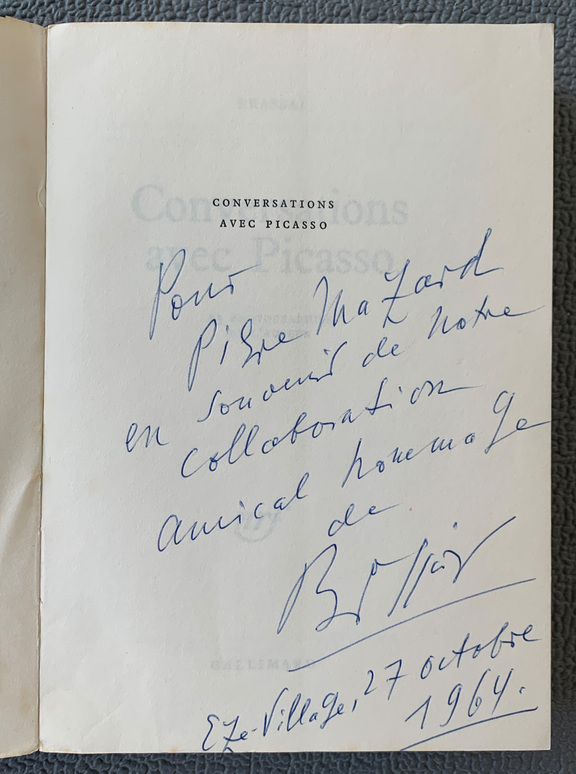 CONVERSATIONS
AVEC PICASSO
Pour
Pierre Mazard
en souvenir de notre
collaboration
amical hommage
de
Brassaï
Eze-Village, 27 octobre
1964.
BRASSAÏ
Conversations
avec Picasso
nrf
GALLIMARD